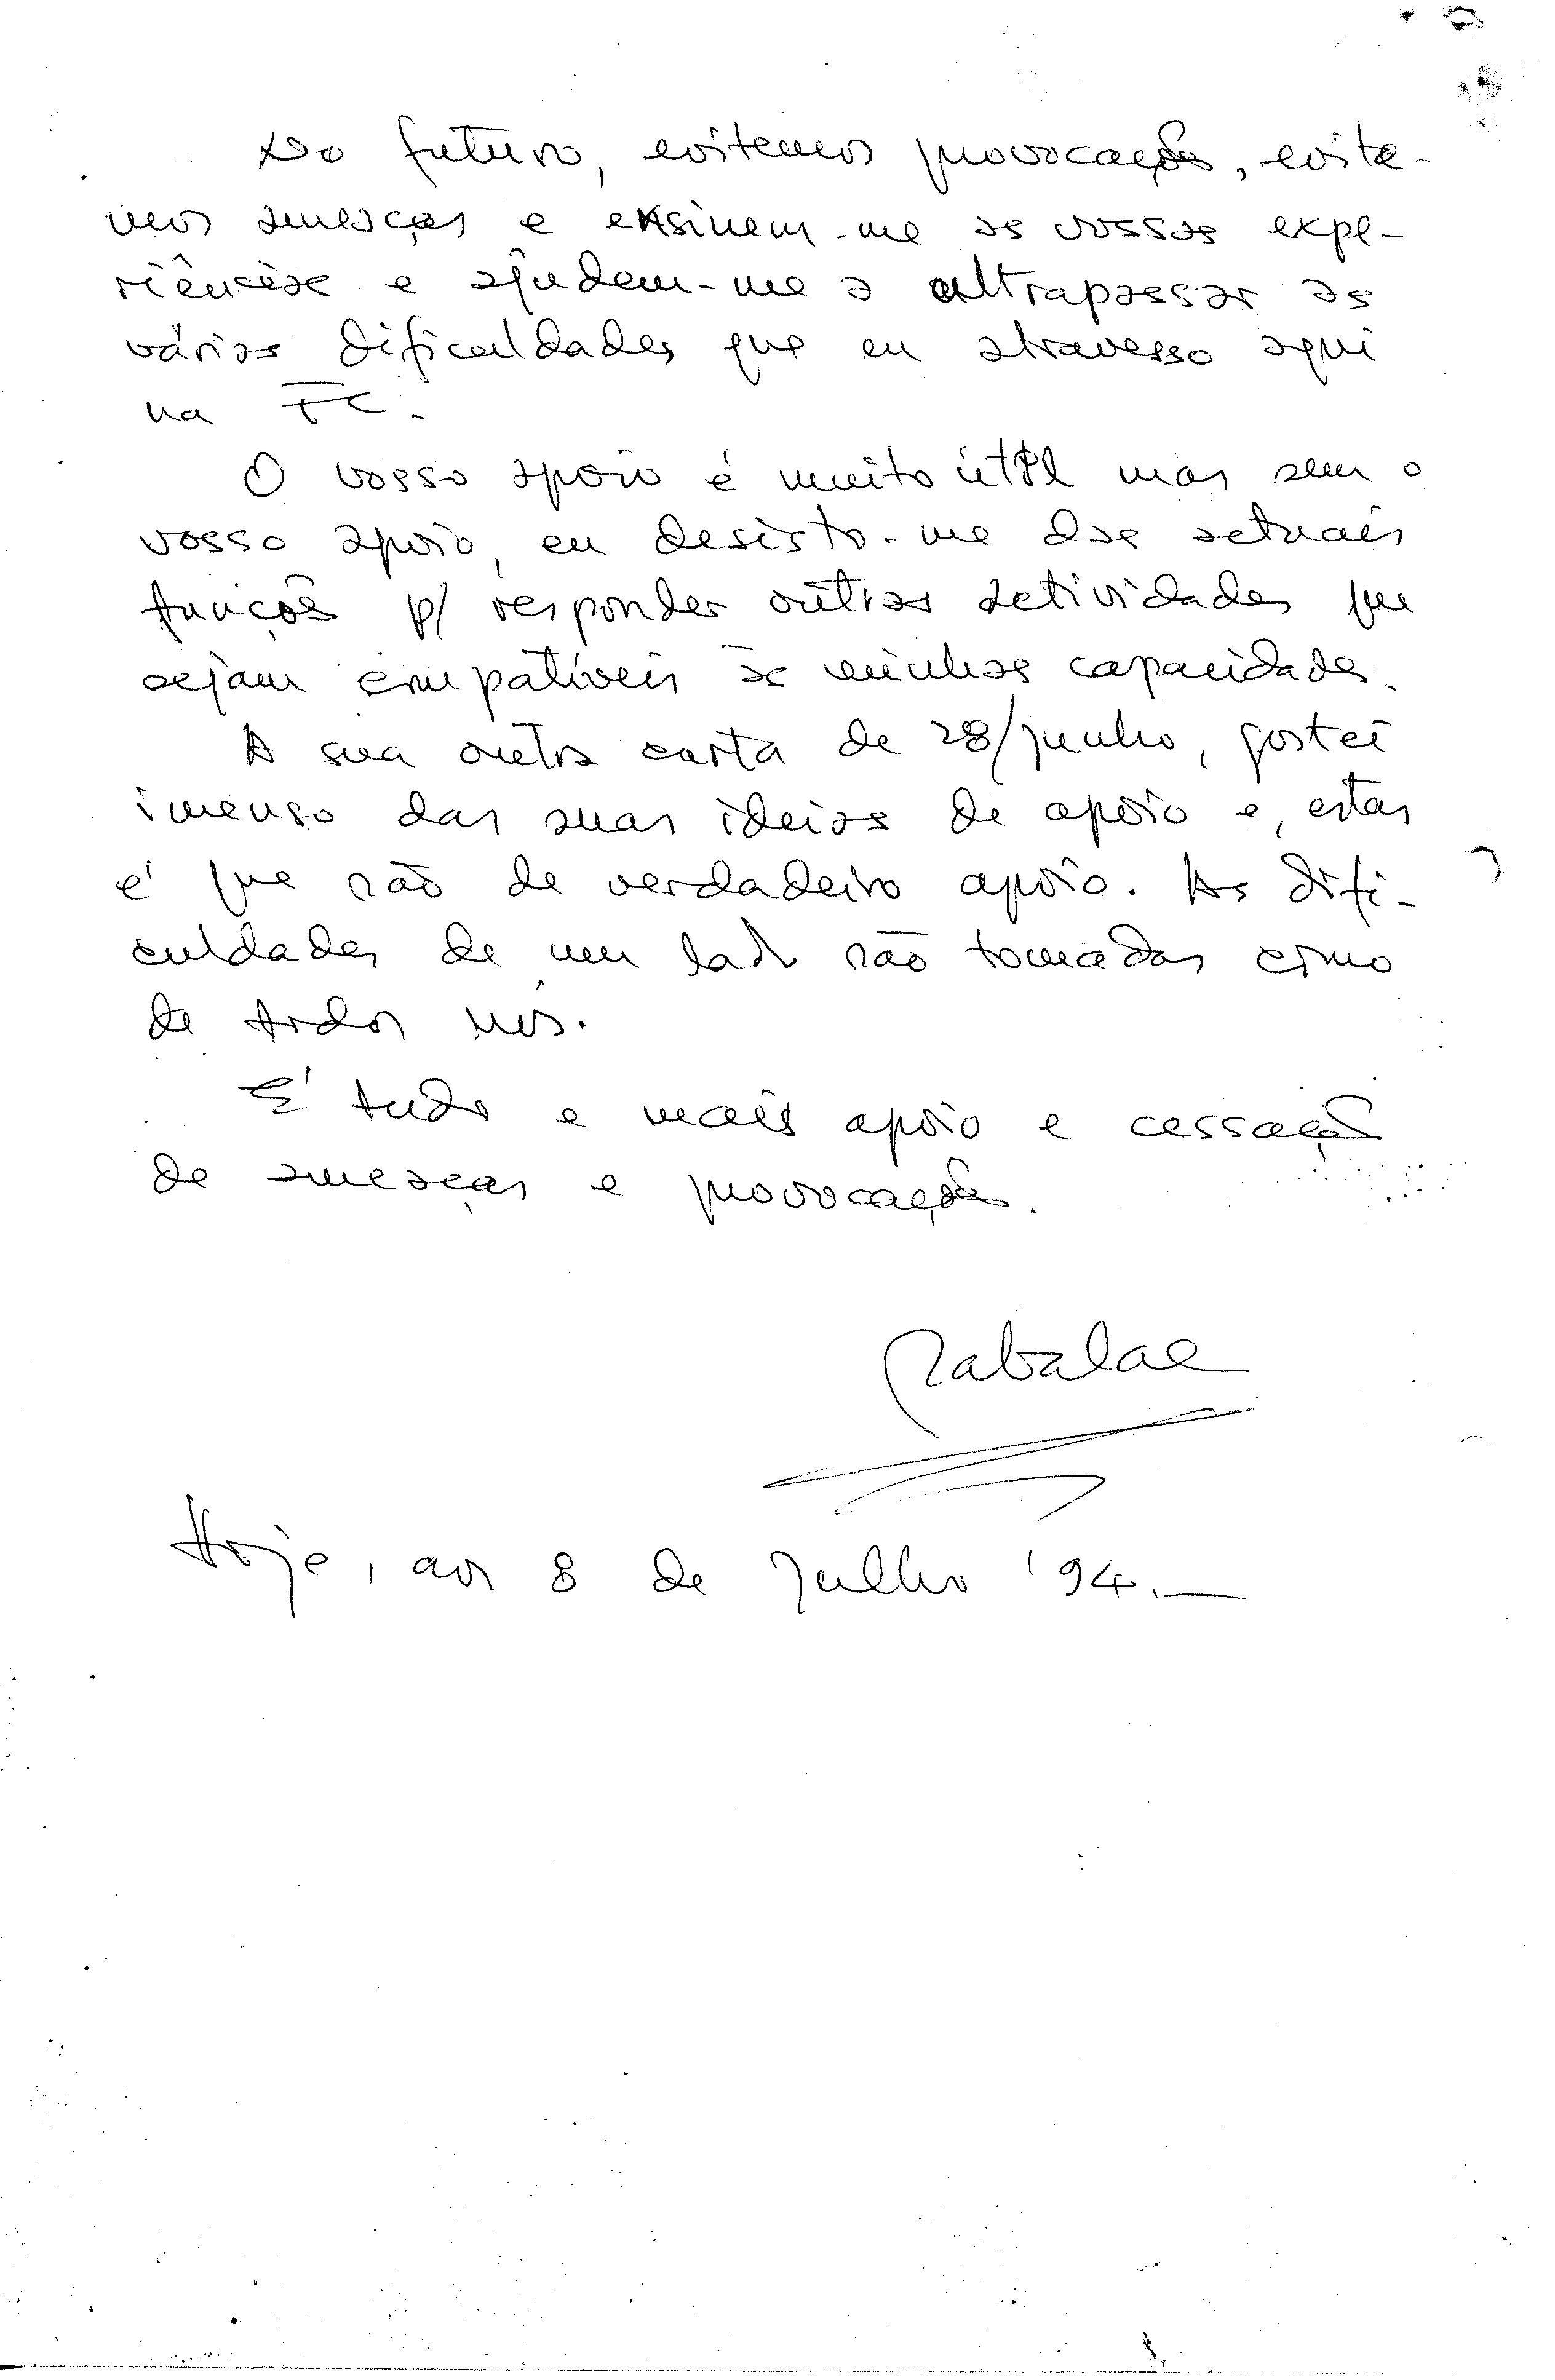 No futuro, evitemos provocações, evite-
mos ameaças e ensinem-me as vossas expe-
riências e ajudem-me a ultrapassar as
várias dificuldades que eu atravesso aqui
na FC.
O vosso apoio é muito útil mas sem o
vosso apoio, eu desisto-me das actuais
funções p/ responder outras actividades que
sejam compatíveis às minhas capacidades.
A sua outra carta de 28/junho, gostei
imenso das suas ideias de apoio e, estas
é que são de verdadeiro apoio. As difi-
culdades de um lado são tomadas como
de todos nós.
É tudo e mais apoio e cessação
de ameaças e provocações.
Hoje, aos 8 de Julho '94.—